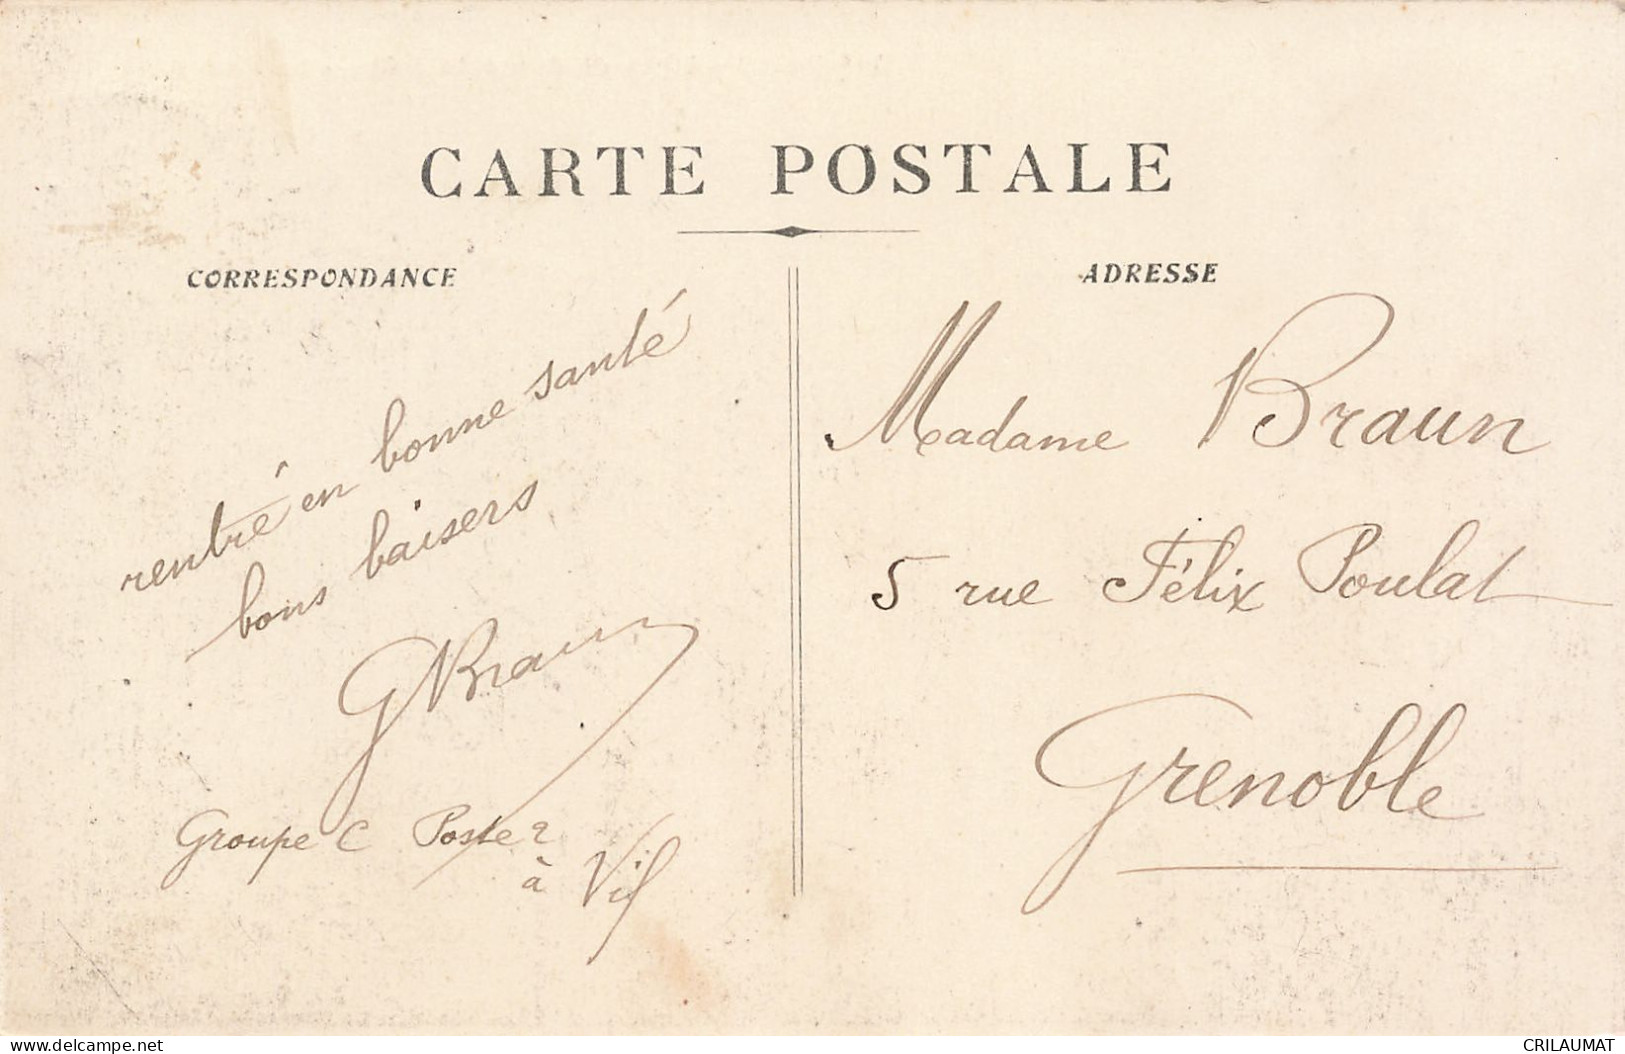 CARTE POSTALE
CORRESPONDANCE
rentré en bonne santé
bons baisers
GBraun
Groupe C Poste 2
à Vif
ADRESSE
Madame Braun
5 rue Félix Poulat
Grenoble
www.delcampe.net
CRILAUMAT